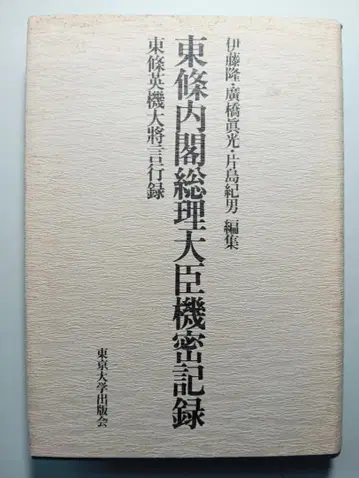 伊藤隆・廣橋眞光・片島紀男 編集
東條内閣総理大臣機密記録
東條英機大將言行録
東京大学出版会